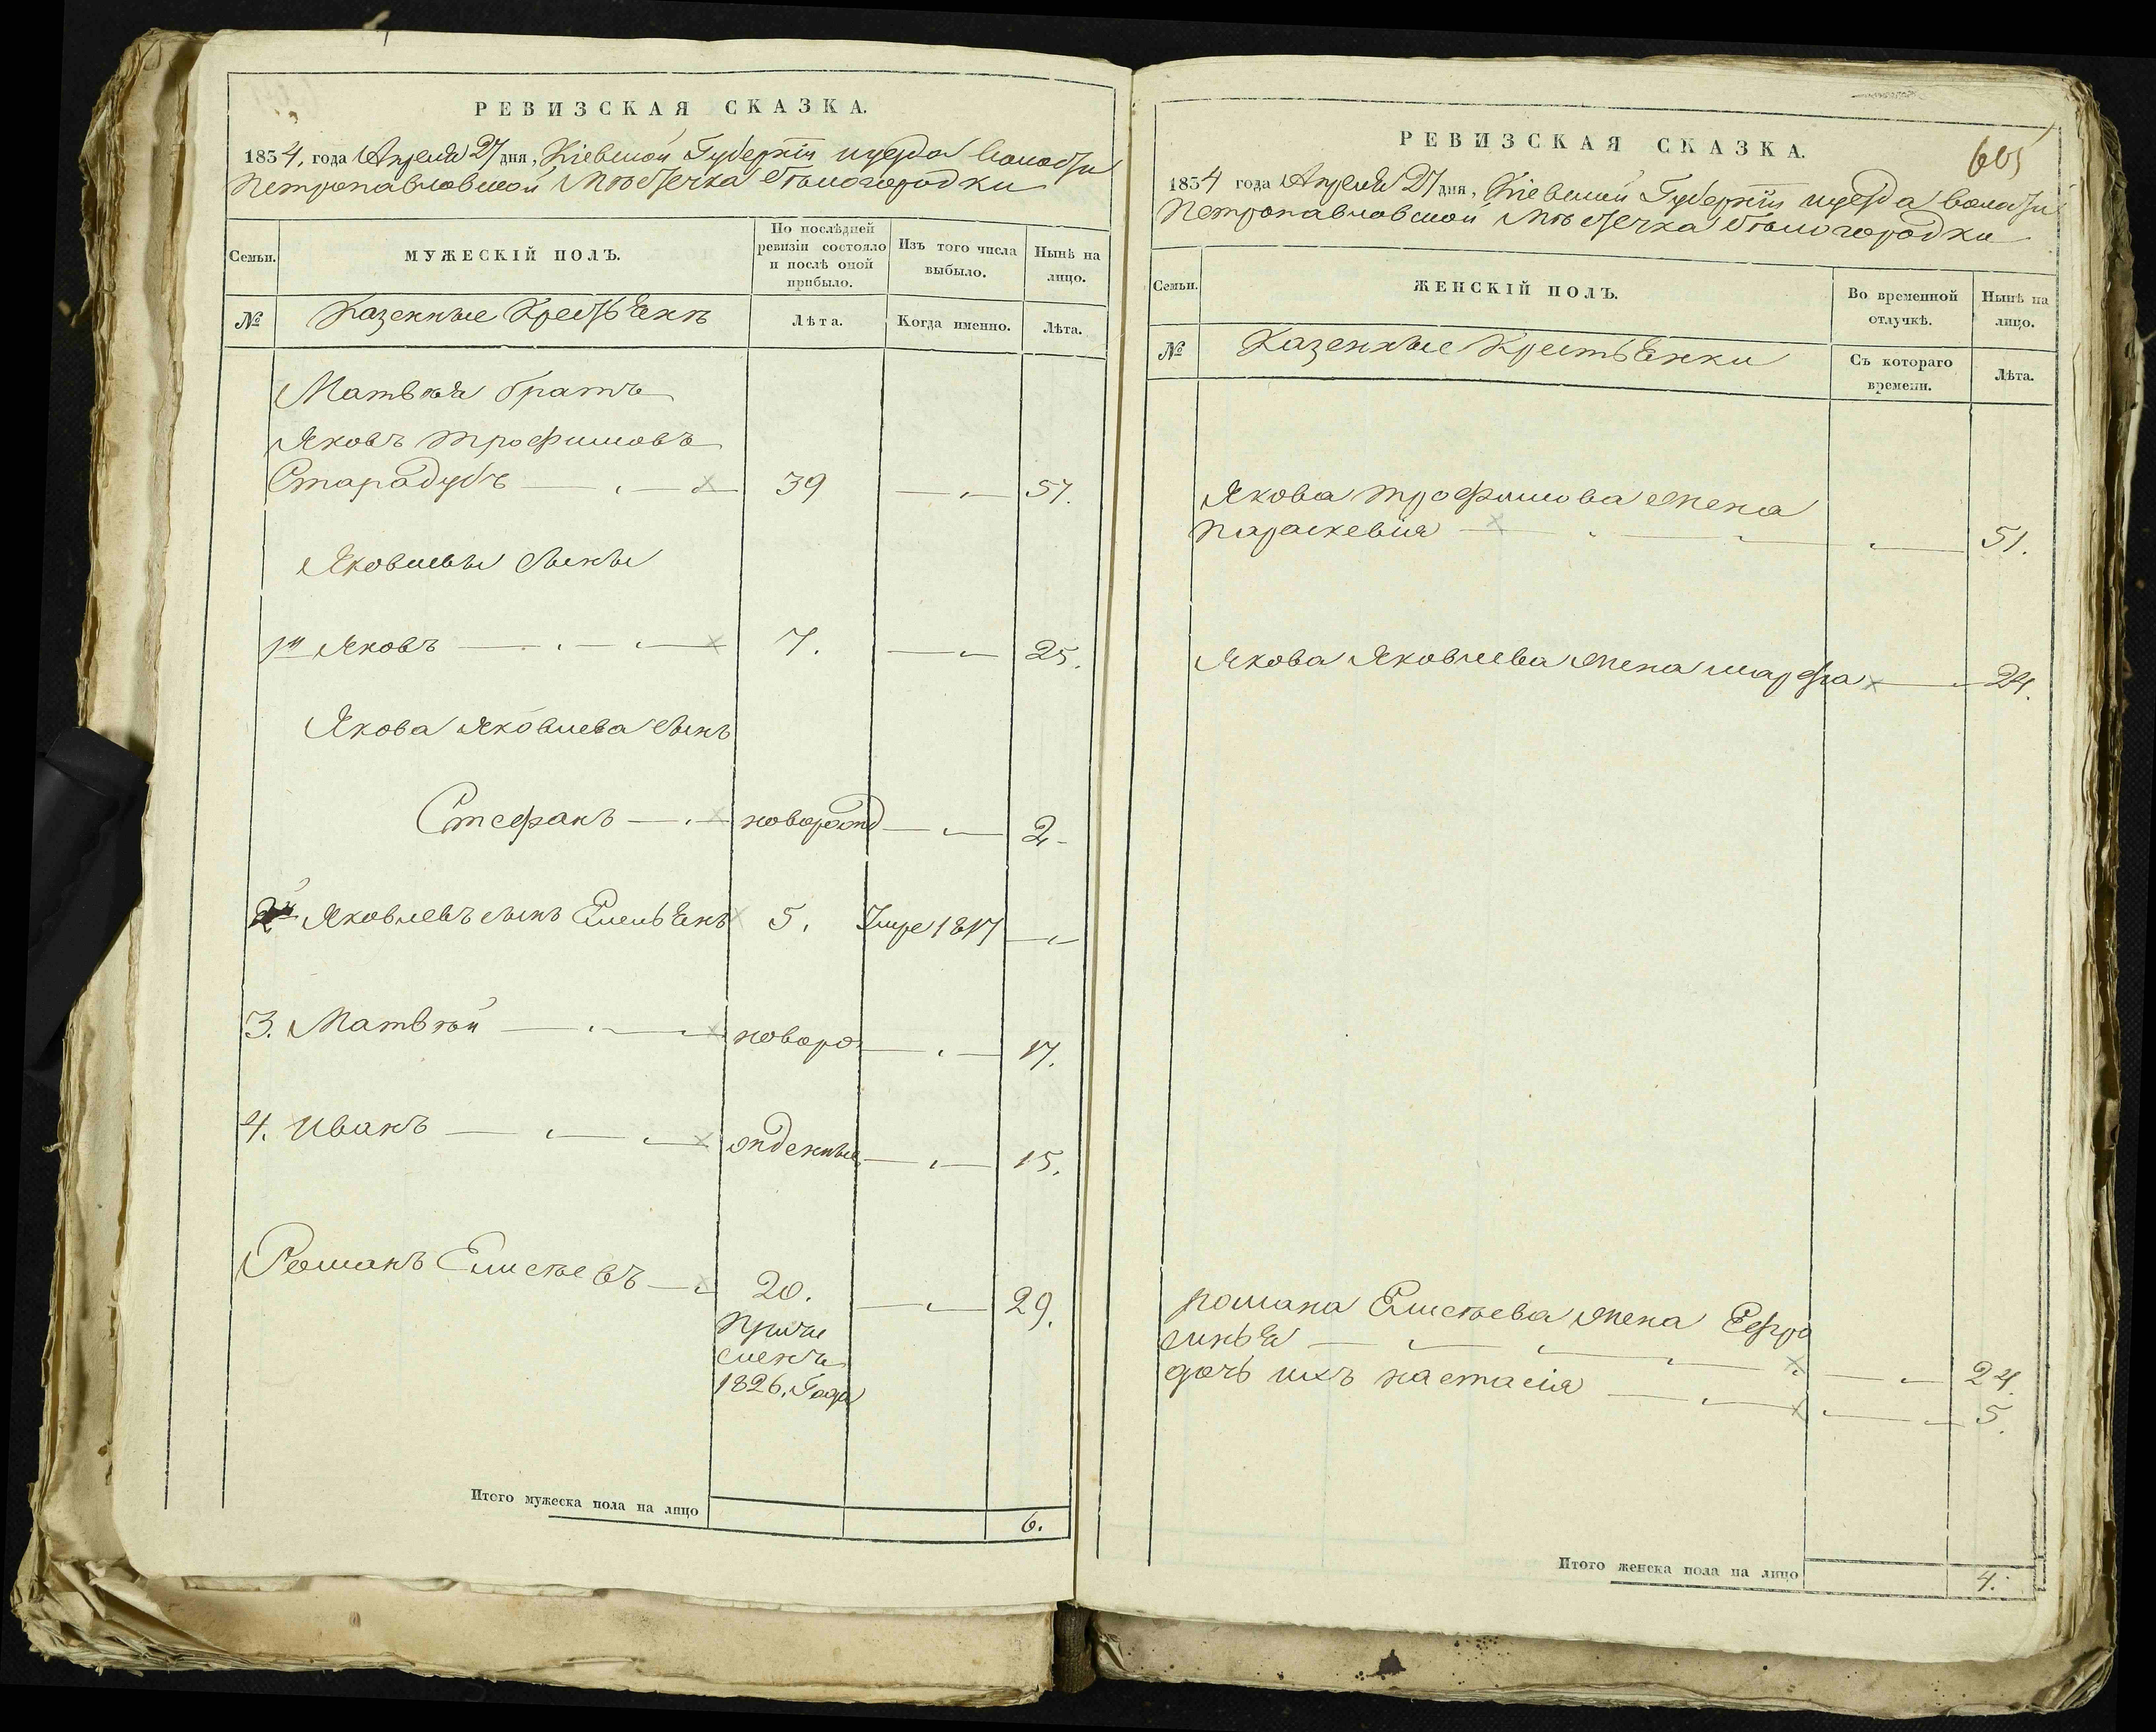 РЕВИЗСКАЯ СКАЗКА.
1854, года Апреля 27 дня, Кіевской Губерніи и уезда волости
Петропавловской Мѣстечка Бѣлогородки
Семьи.
МУЖЕСКІЙ ПОЛЪ.
По послѣдней ревизіи состояло и послѣ оной прибыло.
Изъ того числа выбыло.
Нынѣ на лицо.
№
Казенные Крестьянъ
Лѣта.
Когда именно.
Лѣта.
Матвѣя братъ
Яковъ трофимовъ
Старадубъ 39 57.
Яковлевы сыны
1й Яковъ 7. 25.
Якова Яковлева сынъ
Стефанъ наворожд 2
2й Яковлевъ сынъ Емельянъ 5. Умре 1847
3. Матвѣй новоро 17.
4. Иванъ жденные 15.
Романъ Елисѣевъ 20. 29.
Причи
сленъ
1826, Года
Итого мужеска пола на лицо 6.
605
РЕВИЗСКАЯ СКАЗКА.
1854 года Апреля 27 дня, Кіевской Губерніи и уезда волости
Петропавловской Мѣстечка Бѣлогородки
Семьи.
ЖЕНСКІЙ ПОЛЪ.
Во временной отлучкѣ.
Нынѣ на лицо.
№
Казенные Крестьянки
Съ котораго времени.
Лѣта.
Якова трофимова жена
параскевия 51.
Якова Яковлева жена марфа 24.
романа Елисѣева жена Ефро
синья 24.
дочь ихъ настасія 5.
Итого женска пола на лицо 4.